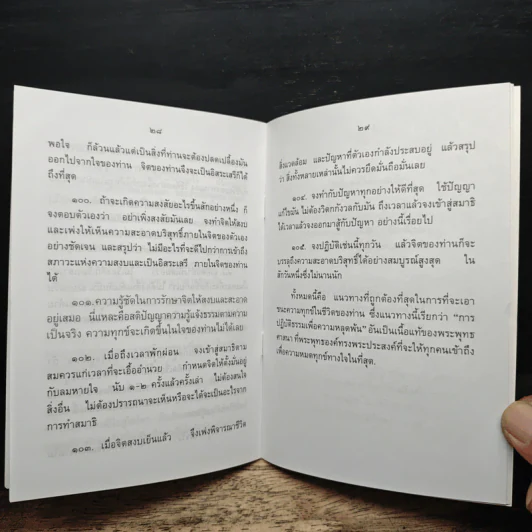 ๒๘
พอใจ ก็ล้วนแล้วแต่เป็นสิ่งที่ท่านจะต้องปลดเปลื้องมัน
ออกไปจากใจของท่าน จิตของท่านจึงจะเป็นอิสระเสรีได้
ถึงที่สุด
๑๐๐. ถ้าจะเกิดความสงสัยอะไรขึ้นสักอย่างหนึ่ง ก็
จงตอบตัวเองว่า อย่าเพิ่งสงสัยมันเลย จงทำจิตให้สงบ
และเพ่งให้เห็นความสะอาดบริสุทธิ์ภายในจิตของตัวเอง
อย่างชัดเจน และสรุปว่า ไม่มีอะไรที่จะดีไปกว่าการเข้าถึง
สภาวะแห่งความสงบและเป็นอิสระเสรี ภายในจิตของท่าน
ได้
๑๐๑.ความรู้ชัดในการรักษาจิตให้สงบและสะอาด
อยู่เสมอ นี่แหละคือสติปัญญาความรู้แจ้งธรรมตามความ
เป็นจริง ความทุกข์จะเกิดขึ้นในใจของท่านไม่ได้เลย
๑๐๒. เมื่อถึงเวลาพักผ่อน จงเข้าสู่สมาธิตาม
สมควรแก่เวลาที่จะเอื้ออำนวย กำหนดจิตให้ตั้งมั่นอยู่
กับลมหายใจ นับ ๑-๒ ครั้งแล้วครั้งเล่า ไม่ต้องสนใจ
สิ่งอื่น ไม่ต้องปรารถนาจะเห็นหรือจะได้จะเป็นอะไรจาก
การทำสมาธิ
๑๐๓. เมื่อจิตสงบเย็นแล้ว จึงเพ่งพิจารณาชีวิต
๒๙
สิ่งแวดล้อม และปัญหาที่ตัวเองกำลังประสบอยู่ แล้วสรุป
ว่า สิ่งทั้งหลายเหล่านั้นไม่ควรยึดมั่นถือมั่นเลย
๑๐๔. จงทำกับปัญหาทุกอย่างให้ดีที่สุด ใช้ปัญญา
แก้ไขมัน ไม่ต้องวิตกกังวลกับมัน ถึงเวลาแล้วจงเข้าสู่สมาธิ
ได้เวลาแล้วจงออกมาสู้กับปัญหา อย่างนี้เรื่อยไป
๑๐๕. จงปฏิบัติเช่นนี้ทุกวัน แล้วจิตของท่านก็จะ
บรรลุถึงความสะอาดบริสุทธิ์ได้อย่างสมบูรณ์สูงสุด ใน
สักวันหนึ่งซึ่งไม่นานนัก
ทั้งหมดนี้คือ แนวทางที่ถูกต้องที่สุดในการที่จะเอา
ชนะความทุกข์ในชีวิตของท่าน ซึ่งแนวทางนี้เรียกว่า “การ
ปฏิบัติธรรมเพื่อความหลุดพ้น” อันเป็นเนื้อแท้ของพระพุทธ
ศาสนา ที่พระพุทธองค์ทรงพระประสงค์ที่จะให้ทุกคนเข้าถึง
เพื่อความหมดทุกข์ทางใจในที่สุด.